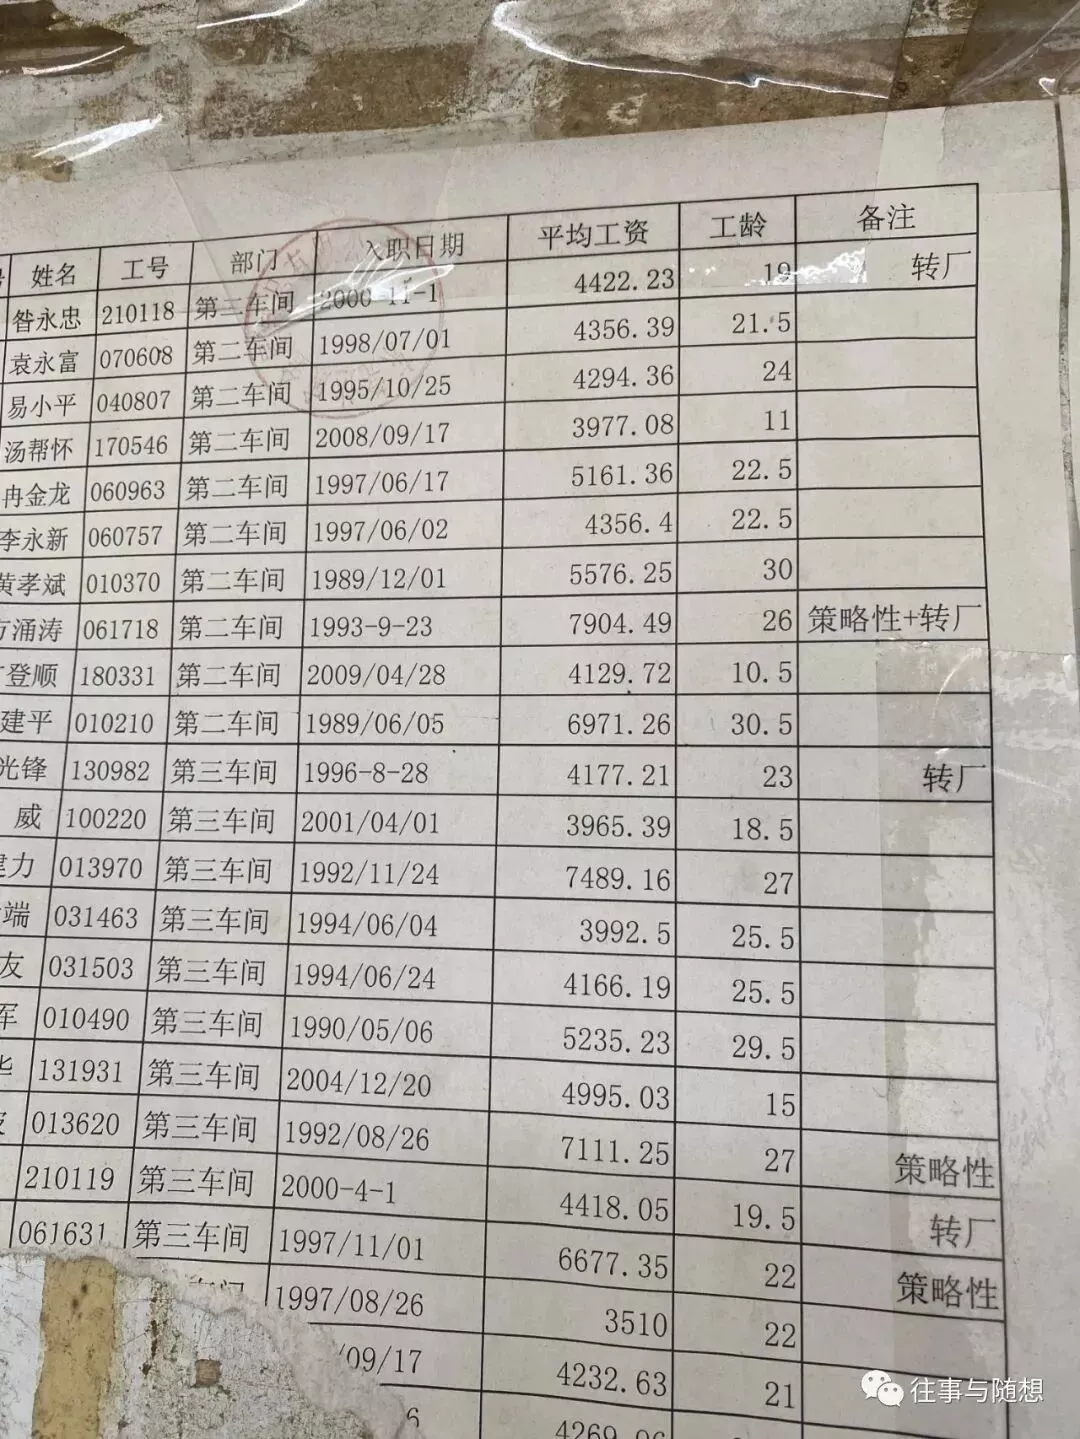 姓名 工号 部门 入职日期 平均工资 工龄 备注
昝永忠 210118 第二车间 2000-11-1 4422.23 19 转厂
袁永富 070608 第二车间 1998/07/01 4356.39 21.5
易小平 040807 第二车间 1995/10/25 4294.36 24
汤帮怀 170546 第二车间 2008/09/17 3977.08 11
冉金龙 060963 第二车间 1997/06/17 5161.36 22.5
李永新 060757 第二车间 1997/06/02 4356.4 22.5
黄孝斌 010370 第二车间 1989/12/01 5576.25 30
涌涛 061718 第二车间 1993-9-23 7904.49 26 策略性+转厂
登顺 180331 第二车间 2009/04/28 4129.72 10.5
建平 010210 第二车间 1989/06/05 6971.26 30.5
光锋 130982 第三车间 1996-8-28 4177.21 23 转厂
威 100220 第三车间 2001/04/01 3965.39 18.5
力 013970 第三车间 1992/11/24 7489.16 27
端 031463 第三车间 1994/06/04 3992.5 25.5
友 031503 第三车间 1994/06/24 4166.19 25.5
军 010490 第三车间 1990/05/06 5235.23 29.5
131931 第三车间 2004/12/20 4995.03 15
013620 第三车间 1992/08/26 7111.25 27 策略性
210119 第三车间 2000-4-1 4418.05 19.5 转厂
061631 第三车间 1997/11/01 6677.35 22 策略性
1997/08/26 3510 22
/09/17 4232.63 21
6 4269.06
往事与随想